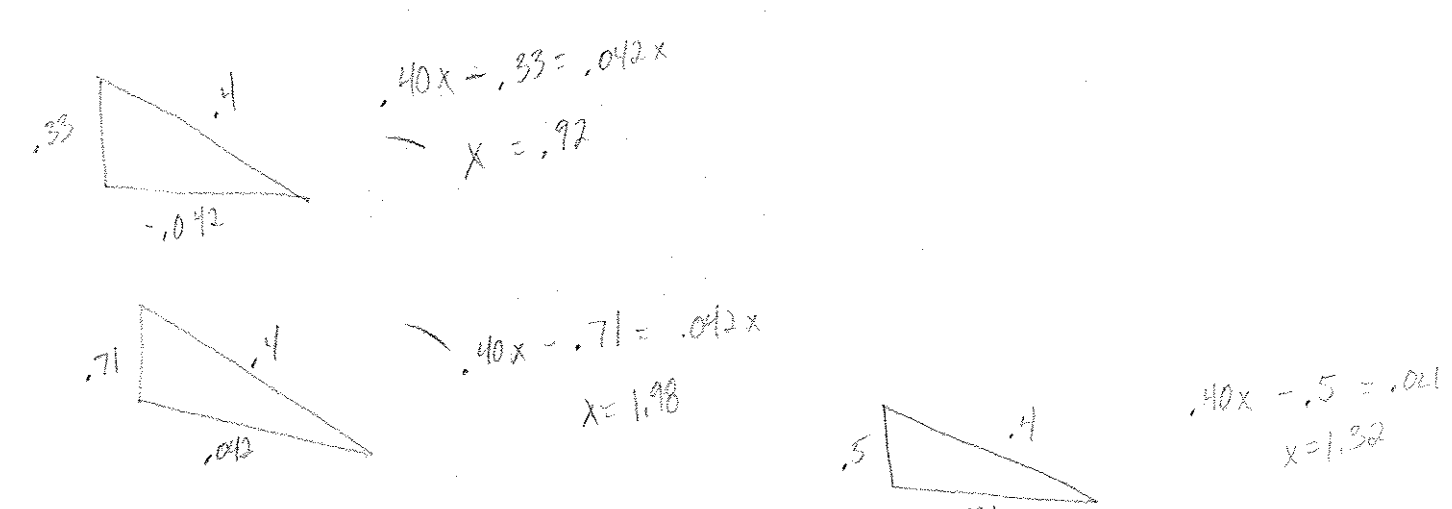 .33
.4
-.042
.40x - .33 = .042x
x = .92
.71
.4
.042
.40x - .71 = .042x
x = 1.98
.5
.4
.40x - .5 = .021
x = 1.32